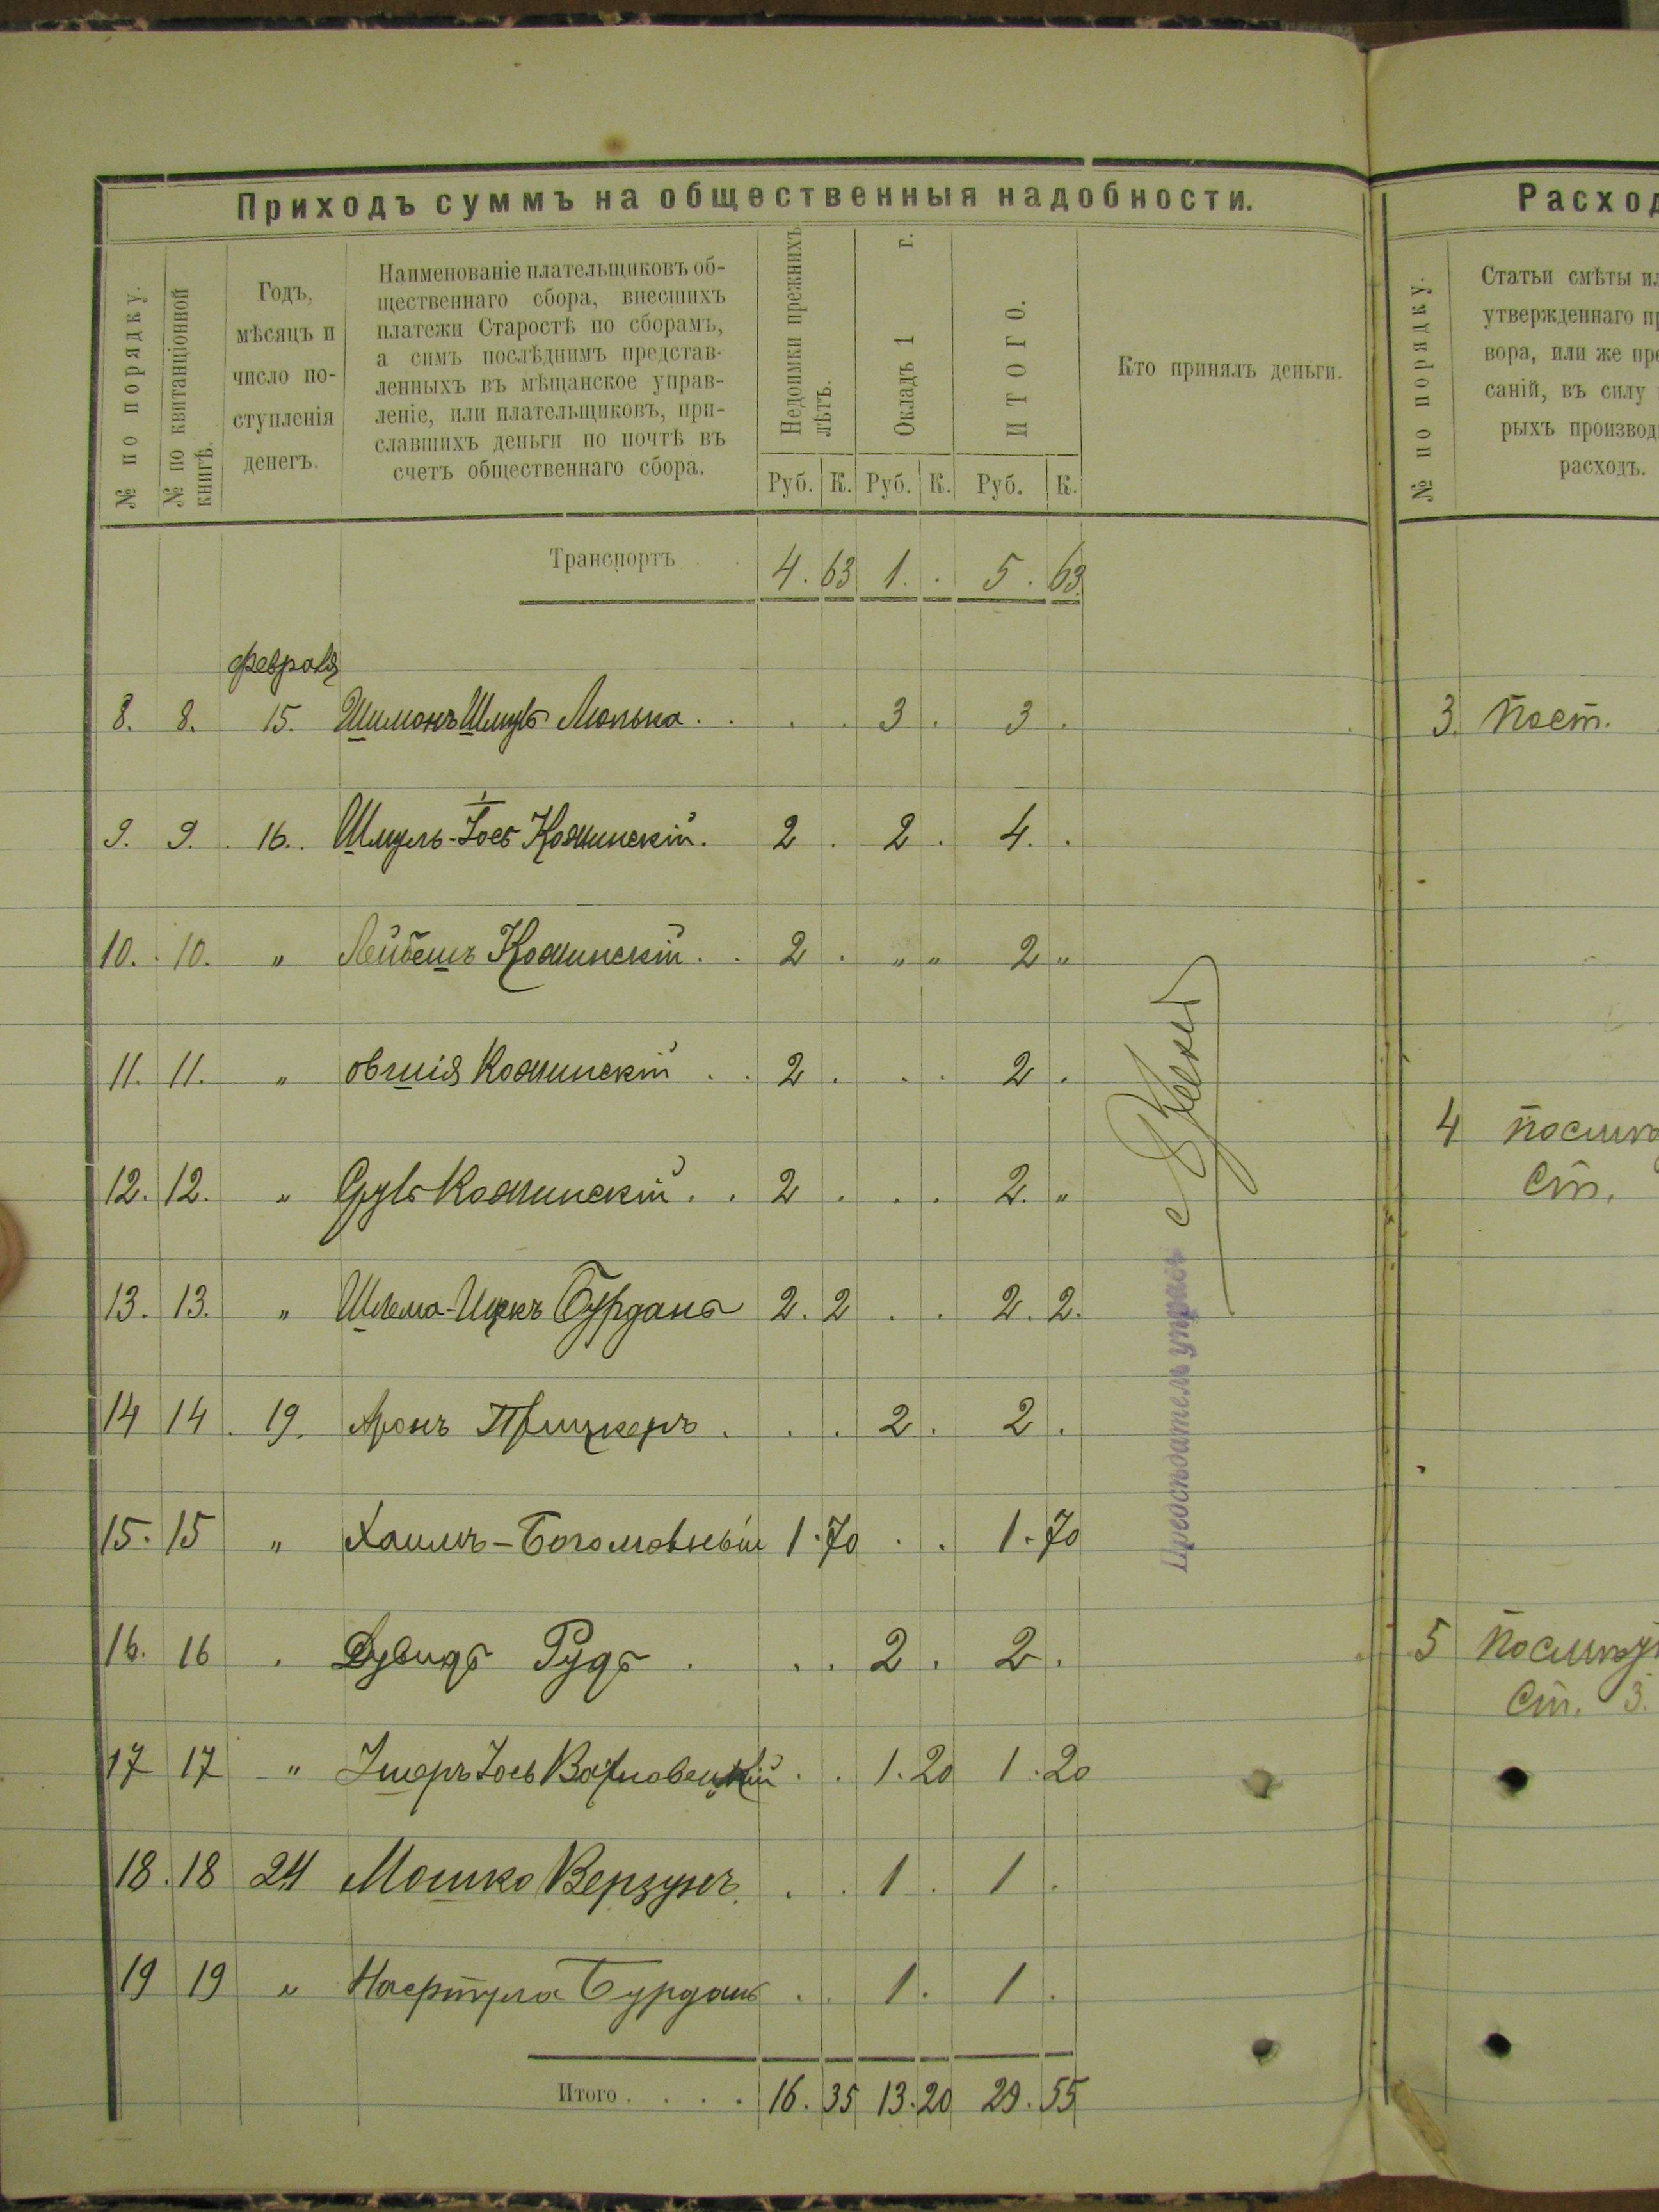 Приходъ суммъ на общественныя надобности.
№ по порядку.
№ по квитанціонной книгѣ.
Годъ,
мѣсяцъ и
число по-
ступленія
денегъ.
Наименованіе плательщиковъ об-
щественнаго сбора, внесшихъ
платежи Старостѣ по сборамъ,
а симъ послѣднимъ представ-
ленныхъ въ мѣщанское управ-
леніе, или плательщиковъ, при-
славшихъ деньги по почтѣ въ
счетъ общественнаго сбора.
Недоимки прежнихъ
лѣтъ.
Окладъ 1 г.
ИТОГО.
Кто принялъ деньги.
Руб. К. Руб. К. Руб. К.
Транспортъ 4. 63 1. . 5. 63
февраля
8. 8. 15. Шимонъ Шмуль . . . . 3 . 3 .
9. 9. . 16.. Шмуль-Іось Кожинскій. 2 . 2 . 4. .
10. . 10. " Лейбешъ Кожинскій . . 2 . " " 2 "
11. 11. " овшія Кожинскій . . 2 . . . 2 .
12. 12. " Сруль Кожинскій . . 2 . . . 2. "
13. 13. " Шлема-Ицкъ Бурданъ 2. 2 . . 2. 2.
14 14 . 19. Аронъ Прицкеръ . . . 2 . 2 .
15. 15 " Хаимъ-Богомольный 1.70 . . 1.70
16. 16 . Дувидъ Рудъ . . . 2 . 2 .
17 17 " Іось . . 1.20 1.20
18. 18 24 Мошко Верзунъ . . 1 . 1 .
19 19 " Нафтула Бурданъ . . 1. 1 .
Итого . . . . 16. 35 13.20 29. 55
Предсѣдатель управы
Расход
№ по порядку.
Статьи смѣты ил
утвержденнаго пр
вора, или же пре
саній, въ силу
рыхъ производ
расходъ.
3. Пост.
4
Ст.
5
Ст. 3.